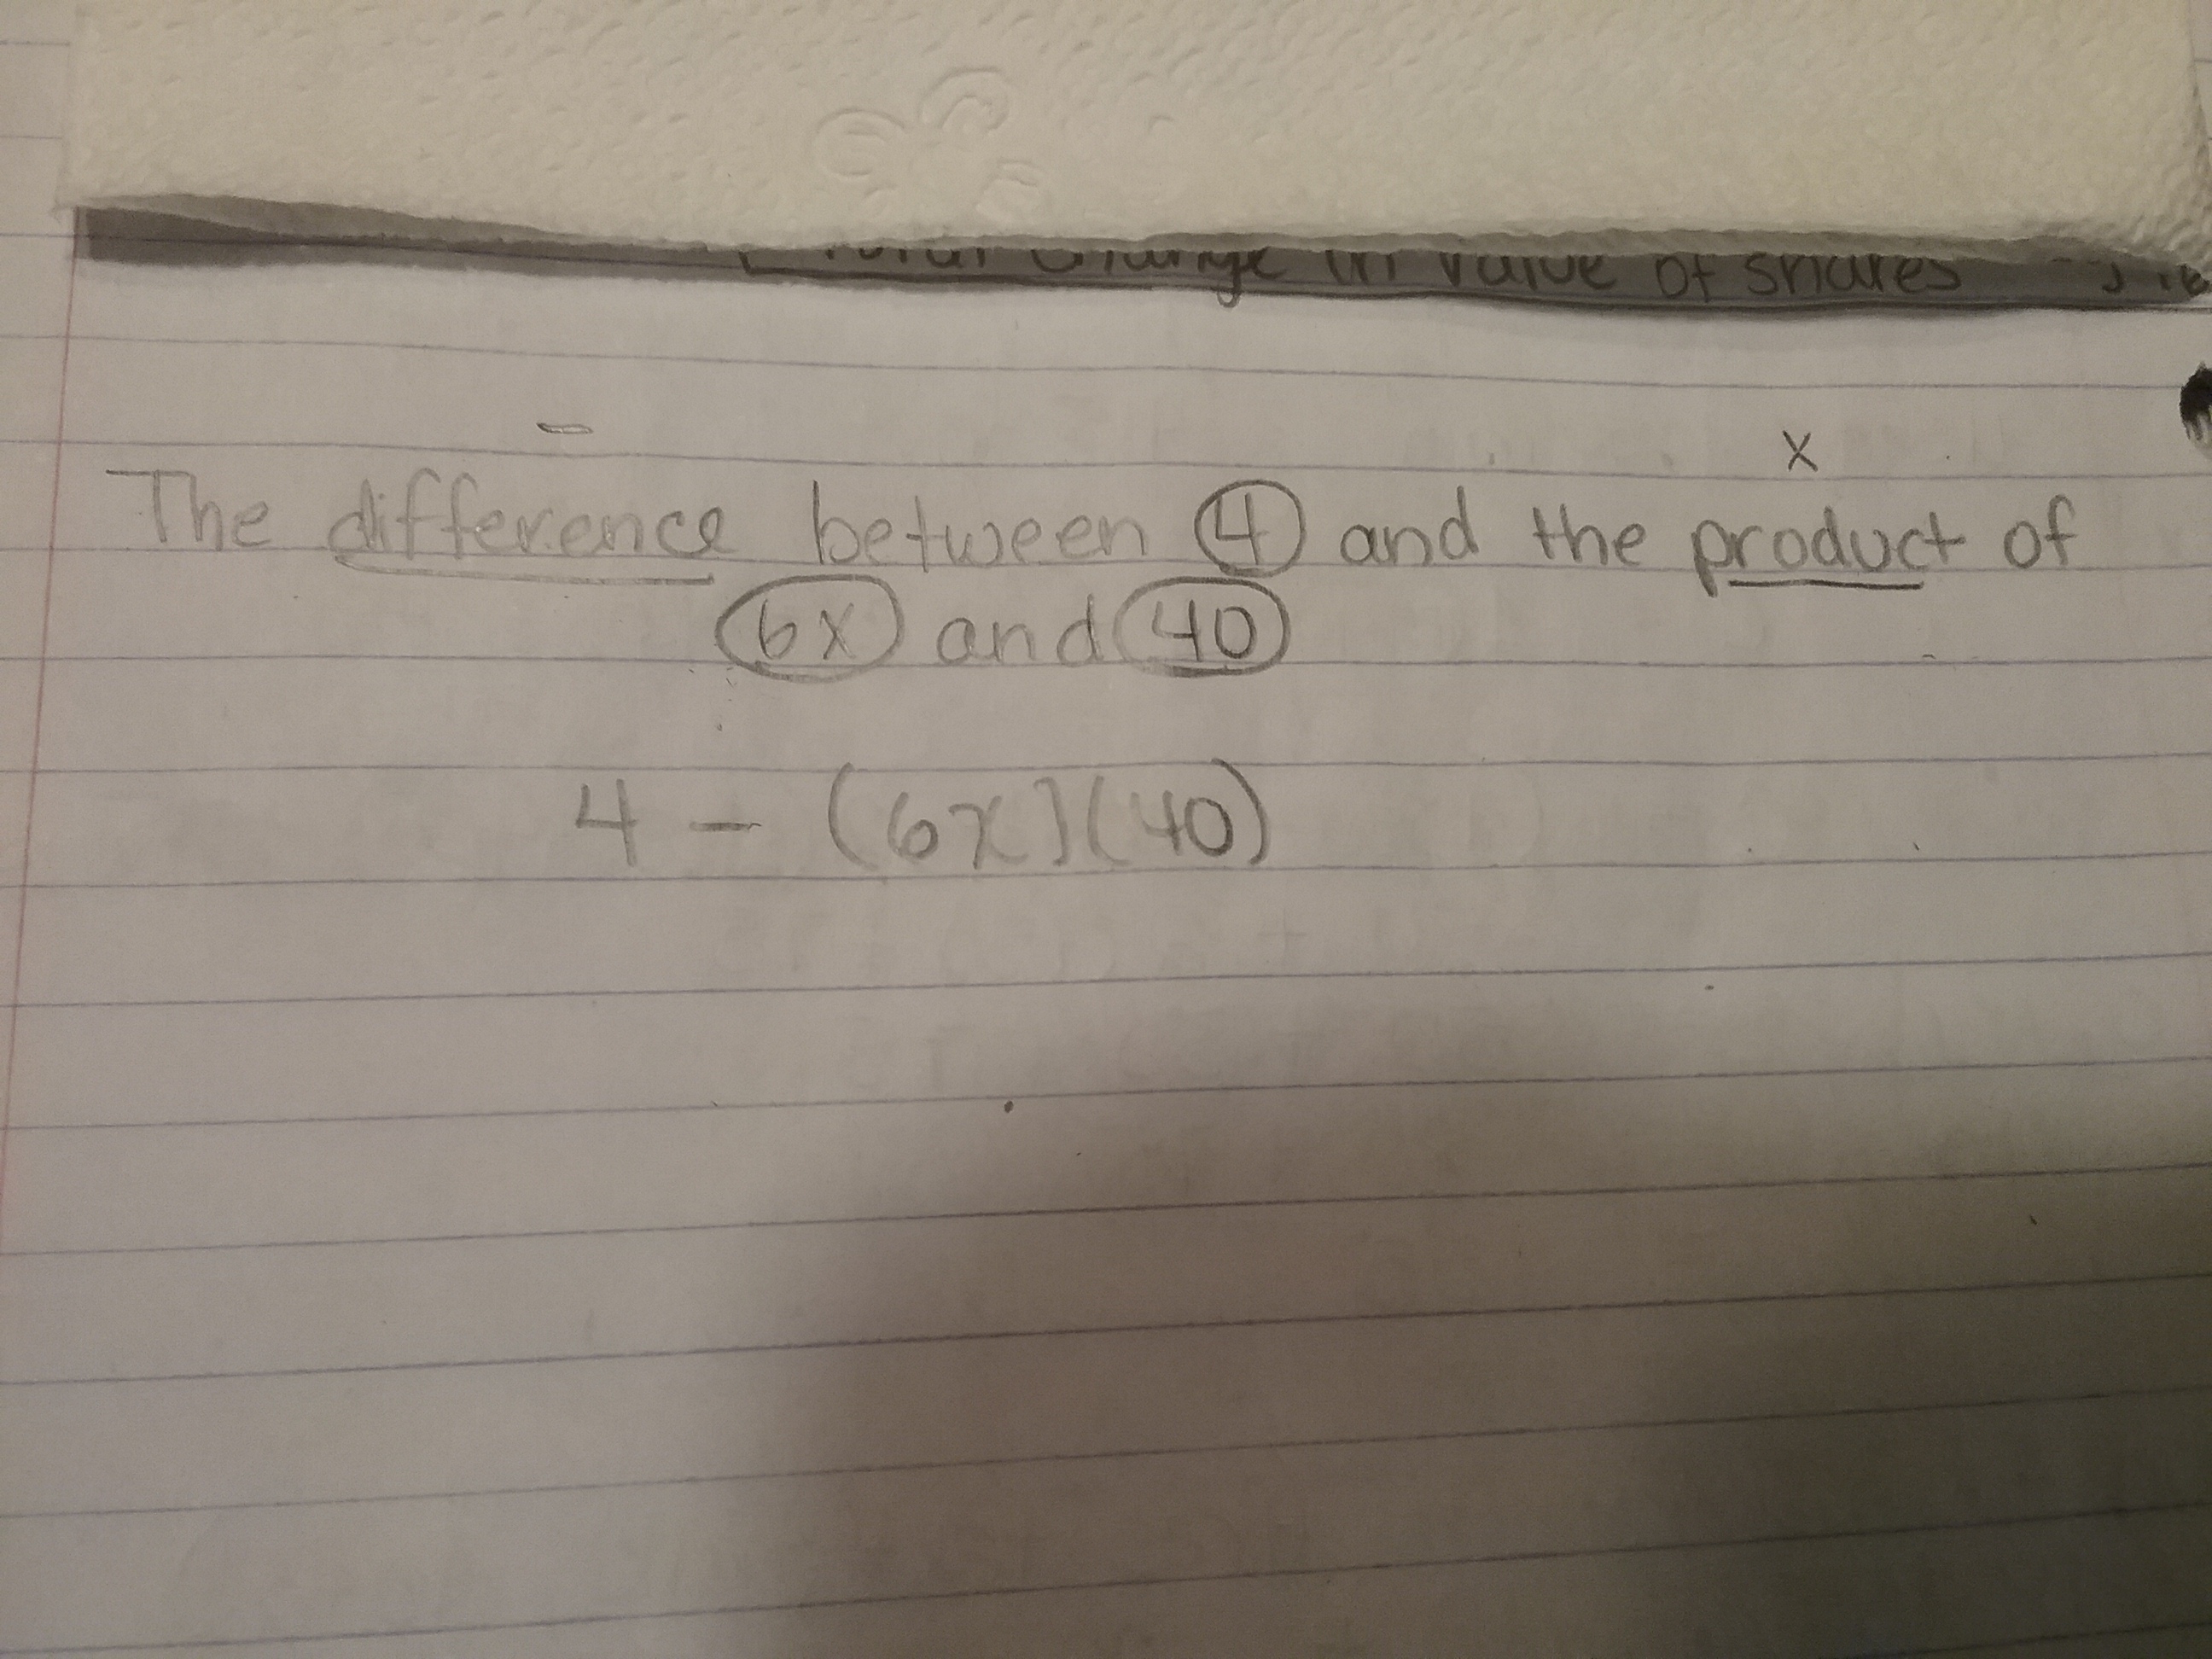 Total change in value of shares
-
x
The difference between 4 and the product of
6x and 40
4 - (6x)(40)